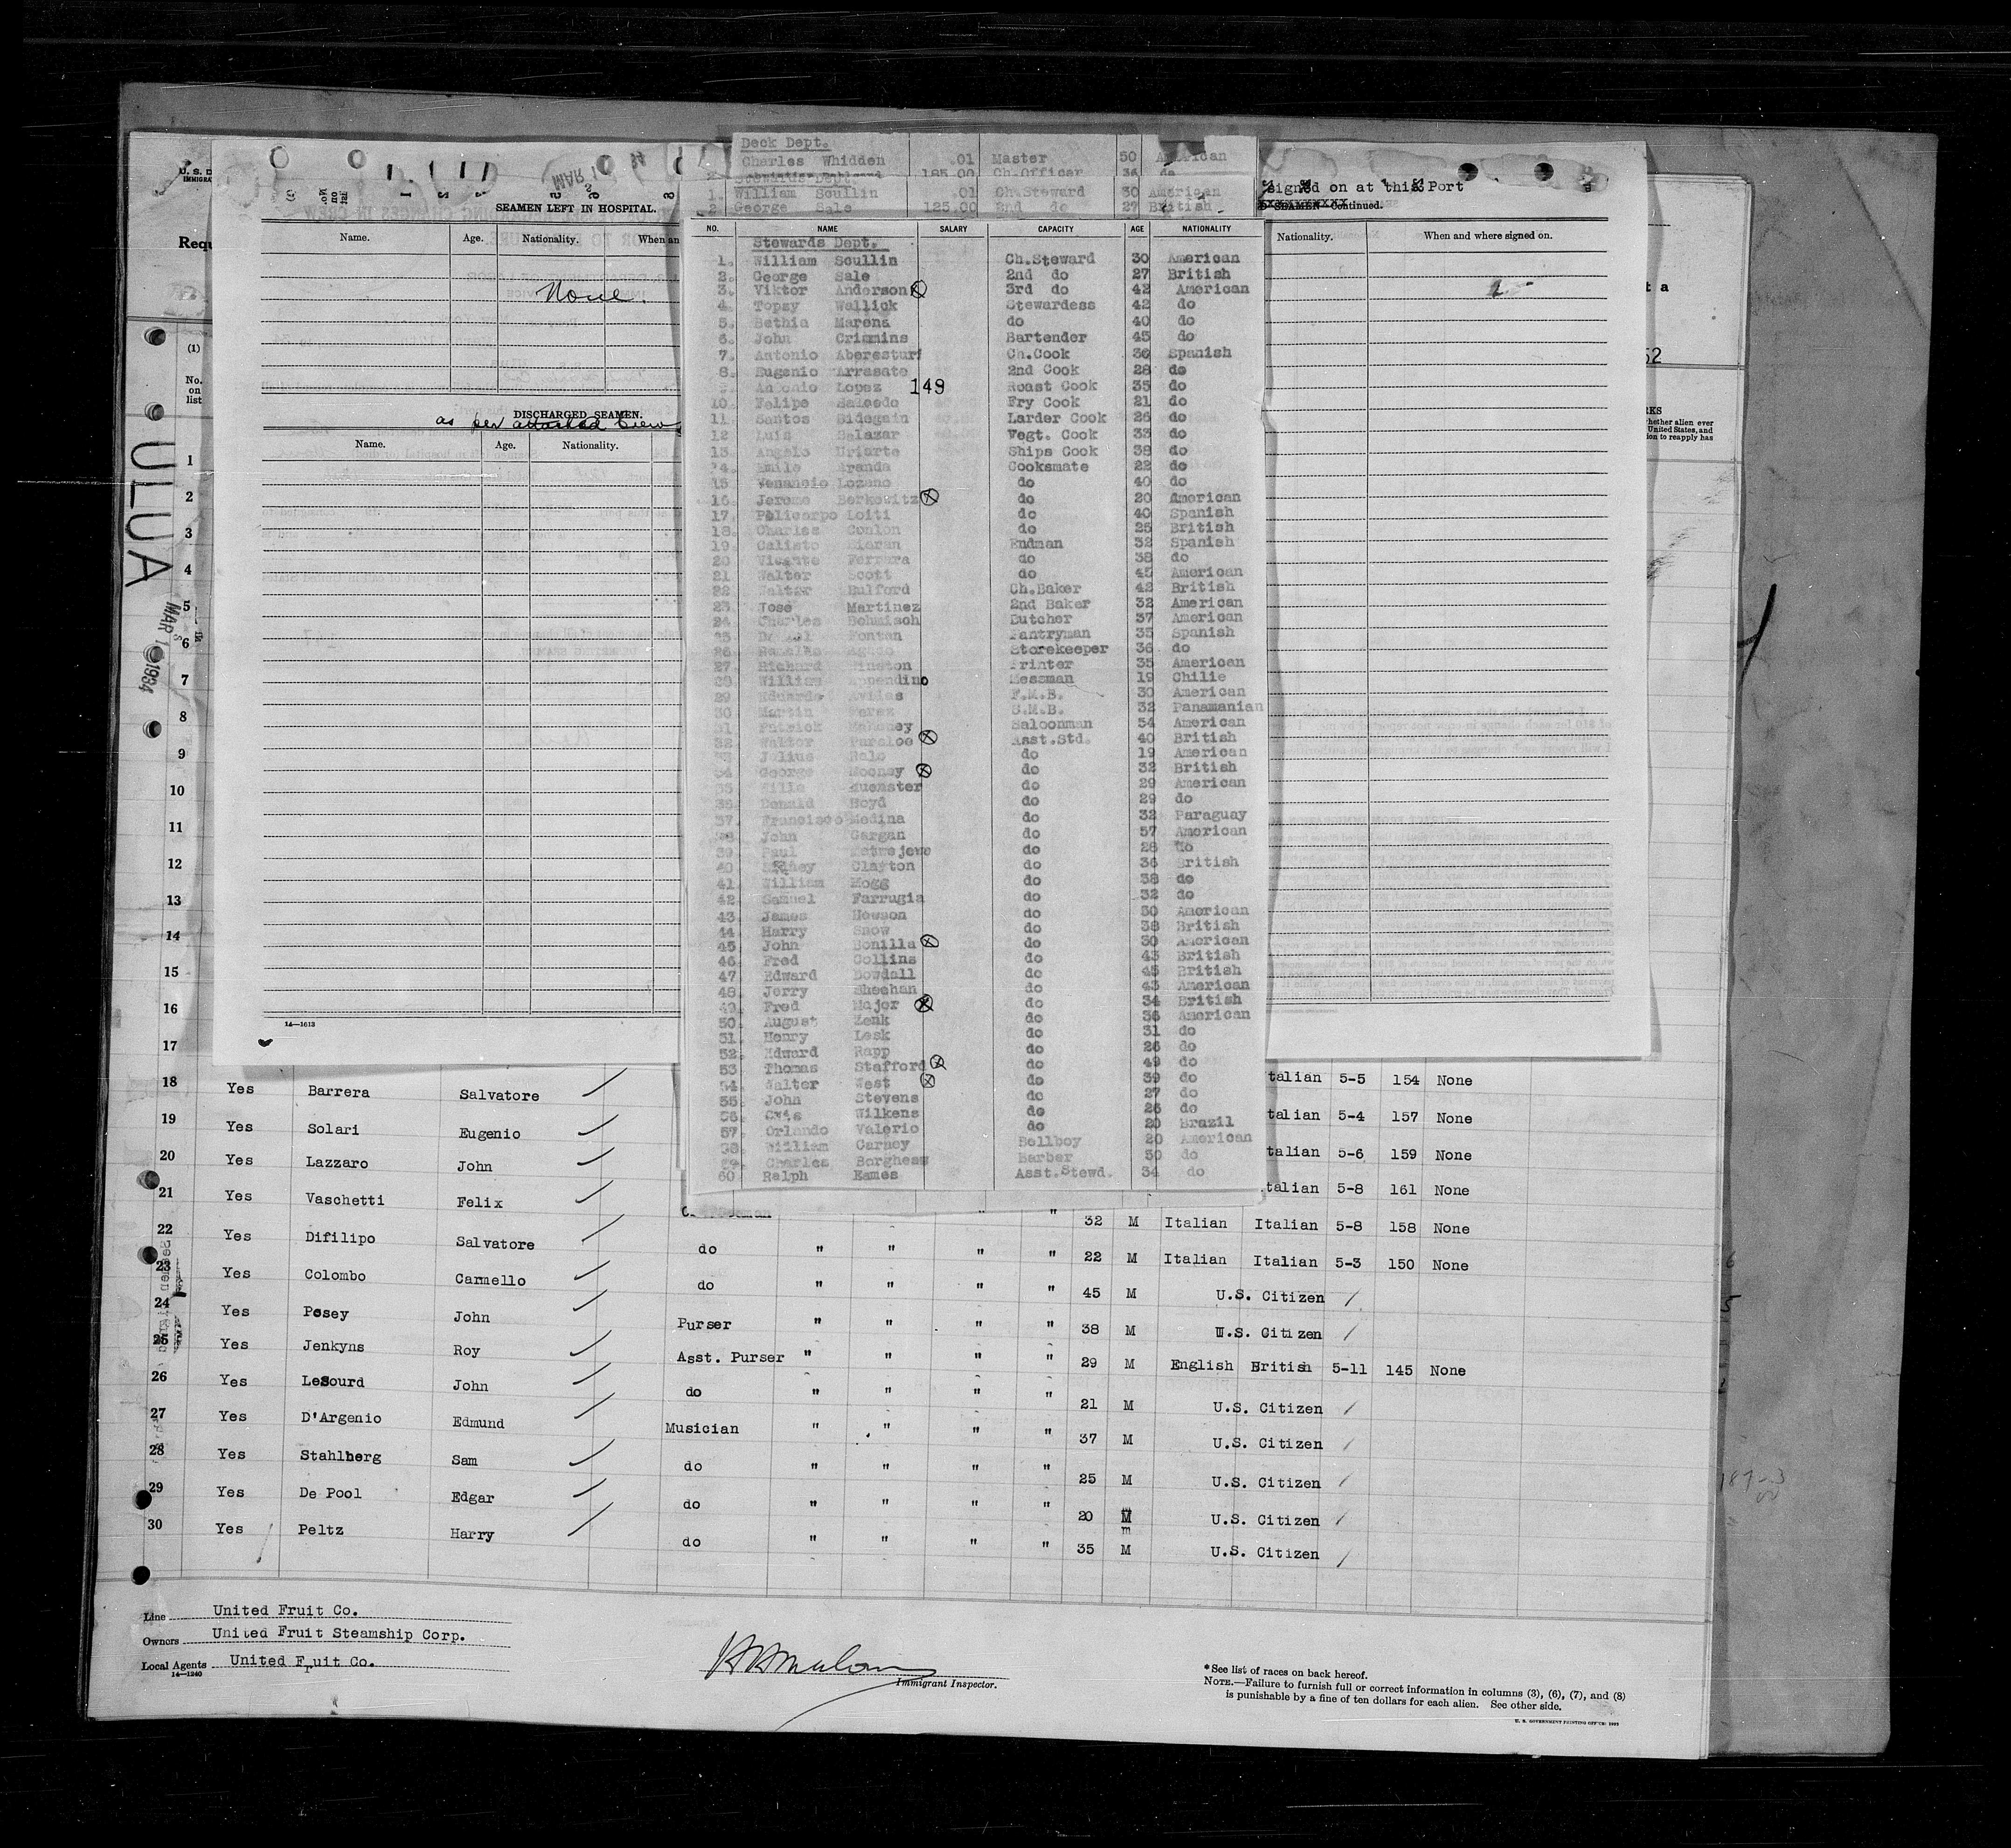 Deck Dept.
Charles Whidden .01 Master 50 American
185.00 Ch.Officer 36 do
1. William Scullin .01 Ch.Steward 30 American
2 George Sale 125.00 2nd do 27 British
U. S. D
IMMIGRA
MAR 1
SEAMEN LEFT IN HOSPITAL.
signed on at this Port
SEAMEN—Continued.
Requ
Name. Age. Nationality. When an
Nationality. When and where signed on.
None.
t a
52
(1)
No. on list
DISCHARGED SEAMEN.
as per attached Crew
Name. Age. Nationality.
RKS
hether alien ever
United States, and
ion to reapply has
ULUA
MAR 1 1934
NO. NAME SALARY CAPACITY AGE NATIONALITY
Stewards Dept.
1. William Scullin Ch.Steward 30 American
2. George Sale 2nd do 27 British
3. Viktor Anderson 3rd do 42 American
4. Topsy Wallick Stewardess 42 do
5. Bethia Marena do 40 do
6. John Crimmins Bartender 45 do
7. Antonio Aberesturi Ch.Cook 36 Spanish
8. Eugenio Arrasate 2nd Cook 28 do
9. Antonio Lopez 149 Roast Cook 35 do
10. Felipe Salcedo Fry Cook 21 do
11. Santos Sidegain Larder Cook 26 do
12 Luis Salazar Vegt. Cook 33 do
13. Angelo Uriarte Ships Cook 38 do
14. Emilo Aranda Cooksmate 22 do
15 Venancio Lozano do 40 do
16. Jerome Berkowitz do 20 American
17. Policarpo Loiti do 40 Spanish
18. Charles Conlon do 25 British
19. Calisto Endman 32 Spanish
20 Vicente Ferrara do 38 do
21. Walter Scott do 45 American
22. Walter Bulford Ch.Baker 42 British
23. Jose Martinez 2nd Baker 32 American
24. Charles Behmisch Butcher 37 American
25. Fontan Pantryman 35 Spanish
26. Storekeeper 36 do
27. Richard Printer 35 American
28. William Messman 19 Chilie
29 Eduardo F.M.B. 30 American
30 Martin Perez S.M.B. 32 Panamanian
31 Patrick Saloonman 54 American
32 Walter Asst.Std. 40 British
33 Julius do 19 American
34 George Mooney do 32 British
35 Muenster do 29 American
36. Donald Boyd do 29 do
37. Francisco Medina do 32 Paraguay
38. John Gargan do 57 American
39. Paul Matwejewe do 28 do
40 Clayton do 36 British
41. William Mogg do 38 do
42. Samuel Farrugia do 32 do
43. James Howson do 50 American
44. Harry Snow do 38 British
45. John Bonilla do 30 American
46. Fred Collins do 43 British
47. Edward Dowdall do 45 British
48. Jerry Sheehan do 43 American
49. Fred Major do 34 British
50. August Zenk do 36 American
51. Henry Lesk do 31 do
52. Edward Rapp do 26 do
53 Thomas Stafford do 49 do
54. Walter West do 39 do
55. John Stevens do 27 do
56. Wilkens do 26 do
57. Orlando Valerio do 20 Brazil
58. William Carney Bellboy 20 American
59. Charles Borgheaw Barber 50 do
60 Ralph Eames Asst.Stewd. 34 do
1
2
3
4
5
6
7
8
9
10
11
12
13
14
15
16
14—1613
17
18 Yes Barrera Salvatore talian 5-5 154 None
19 Yes Solari Eugenio talian 5-4 157 None
20 Yes Lazzaro John talian 5-6 159 None
21 Yes Vaschetti Felix talian 5-8 161 None
" " 32 M Italian Italian 5-8 158 None
22 Yes Difilipo Salvatore do " " " " 22 M Italian Italian 5-3 150 None
23 Yes Colombo Carmello do " " " " 45 M U.S. Citizen
24 Yes Posey John Purser " " " " 38 M U.S. Citizen
25 Yes Jenkyns Roy Asst. Purser " " " " 29 M English British 5-11 145 None
26 Yes LeSourd John do " " " " 21 M U.S. Citizen
27 Yes D'Argenio Edmund Musician " " " " 37 M U.S. Citizen
28 Yes Stahlberg Sam do " " " " 25 M U.S. Citizen
29 Yes De Pool Edgar do " " " " 20 M U.S. Citizen
30 Yes Peltz Harry do " " " " 35 M U.S. Citizen
Line United Fruit Co.
Owners United Fruit Steamship Corp.
Local Agents United Fruit Co.
14—1240
Immigrant Inspector.
*See list of races on back hereof.
NOTE.—Failure to furnish full or correct information in columns (3), (6), (7), and (8)
is punishable by a fine of ten dollars for each alien. See other side.
U. S. GOVERNMENT PRINTING OFFICE: 1933